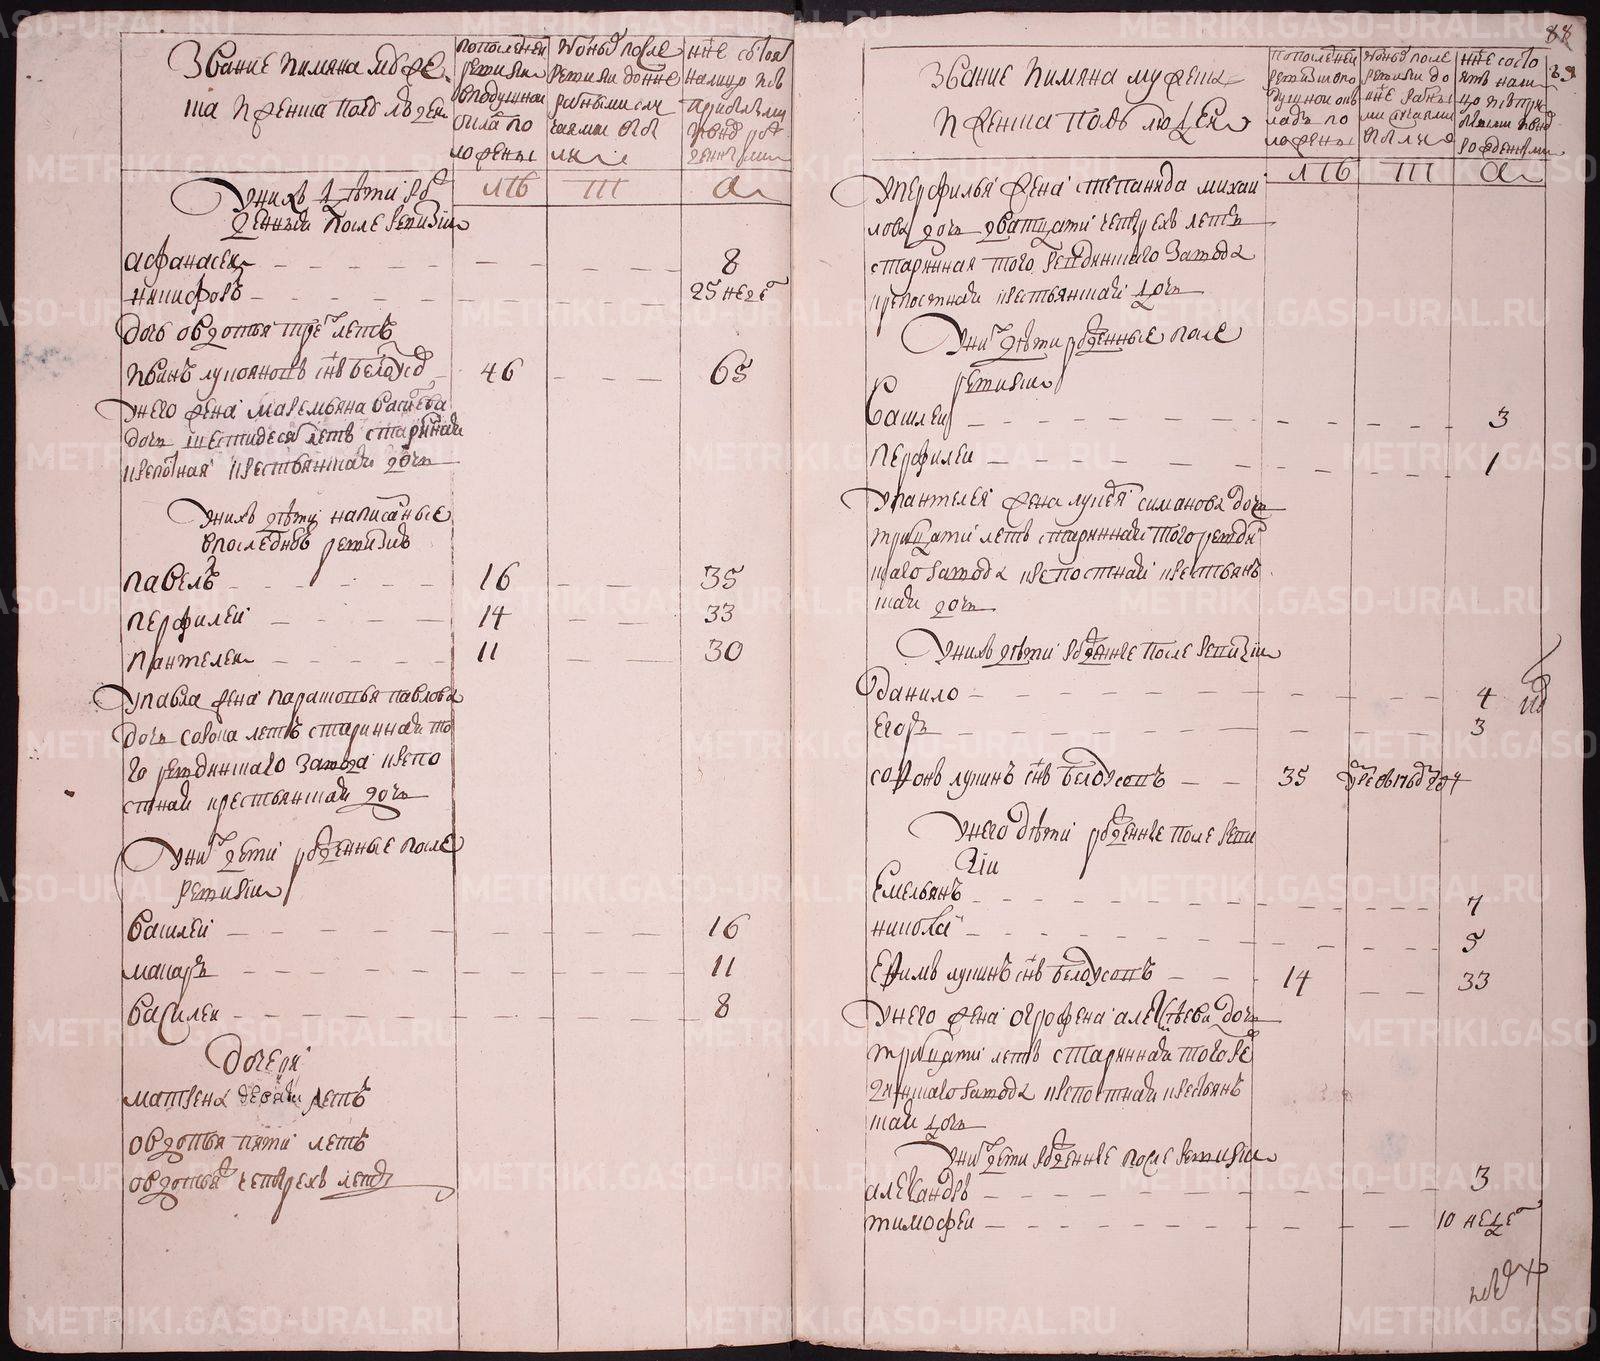 Звание имяна мужес
ка и женска полу людеи
по последнеи
ревизии
в подушнои
окладъ по
ложены
ис оных после
ревизии до нне
разными слу
чаями выбы
ли
нне состоя
на лицо и в
лета
Унихъ дѣти рож
денныи после ревизии
афанасеи 8
никифоръ 25 неде
дочь овдотья трех летъ
иванъ лукояновъ снъ белоусов 46 65
Унего жена маремьяна васильева
дочь шестидесят летъ старинная
крепосная крестьянская дочь
Унихъ дѣти написаные
в последнюю ревизию
павелъ 16 35
перфилеи 14 33
пантелеи 11 30
Упавла жена парасковья павлова
дочь сорока летъ старинная то
го ревдинскаго завода крепо
стная крестьянская дочь
Уних дети рожденные после
ревизии
василеи 16
макаръ 11
василеи 8
дочери
матрена десяти летъ
овдотья пяти летъ
овдотья четырехъ летъ
88
89
Звание имяна мужеска
и женска полъ людеи
по последнеи
ревизии в по
душнои ок
ладъ по
ложены
ис оных после
ревизии до
нне разны
ми случаями
выбыло
нне состо
ятъ нали
цо
рожденными
Уперфилья жена степанида михаи
лова дочь дватцати четырехъ летъ
старинная того ревдинскаго завода
крепостная крестьянская дочь
Уних дѣти рожденные после
ревизии
василеи 3
перфилеи 1
Упантелея жена лукея симанова дочь
тритцати летъ старинная того ревдин
скаго завода крепостная крестьянъ
ская дочь
Унихъ дѣти рожденные после ревизии
данило 4
егоръ 3
софонъ лукинъ снъ белоусовъ 35 умре въ 1764
Унего дѣти рожденные после реви
зии
емельянъ 7
николаи 5
ефимъ лукинъ снъ белоусовъ 14 33
Унего жена огрофена алексѣева дочь
тритцати летъ старинная того ре
вдинскаго завода крепостная крестьянъ
ская дочь
Уних дети рожденные после ревизии
александръ 3
тимофеи 10 неде
METRIKI.GASO-URAL.RU